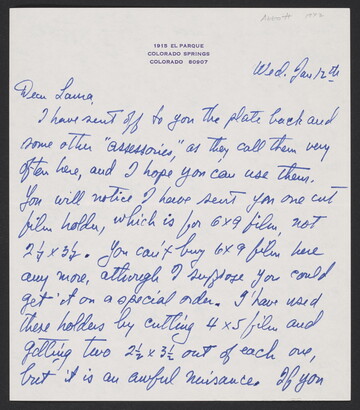 1915 EL PARQUE
COLORADO SPRINGS
COLORADO 80907
Wed. Jan 12th
Dear Laura,
I have sent off to you the plate back and
some other "assessories," as they call them very
often here, and I hope you can use them.
You will notice I have sent you one cut
film holder, which is for 6x9 film, not
2¼ x 3¼. You can't buy 6x9 film here
any more, although I suppose you could
get it on a special order. I have used
these holders by cutting 4x5 film and
getting two 2½ x 3½ out of each one,
but it is an awful nuisance. If you